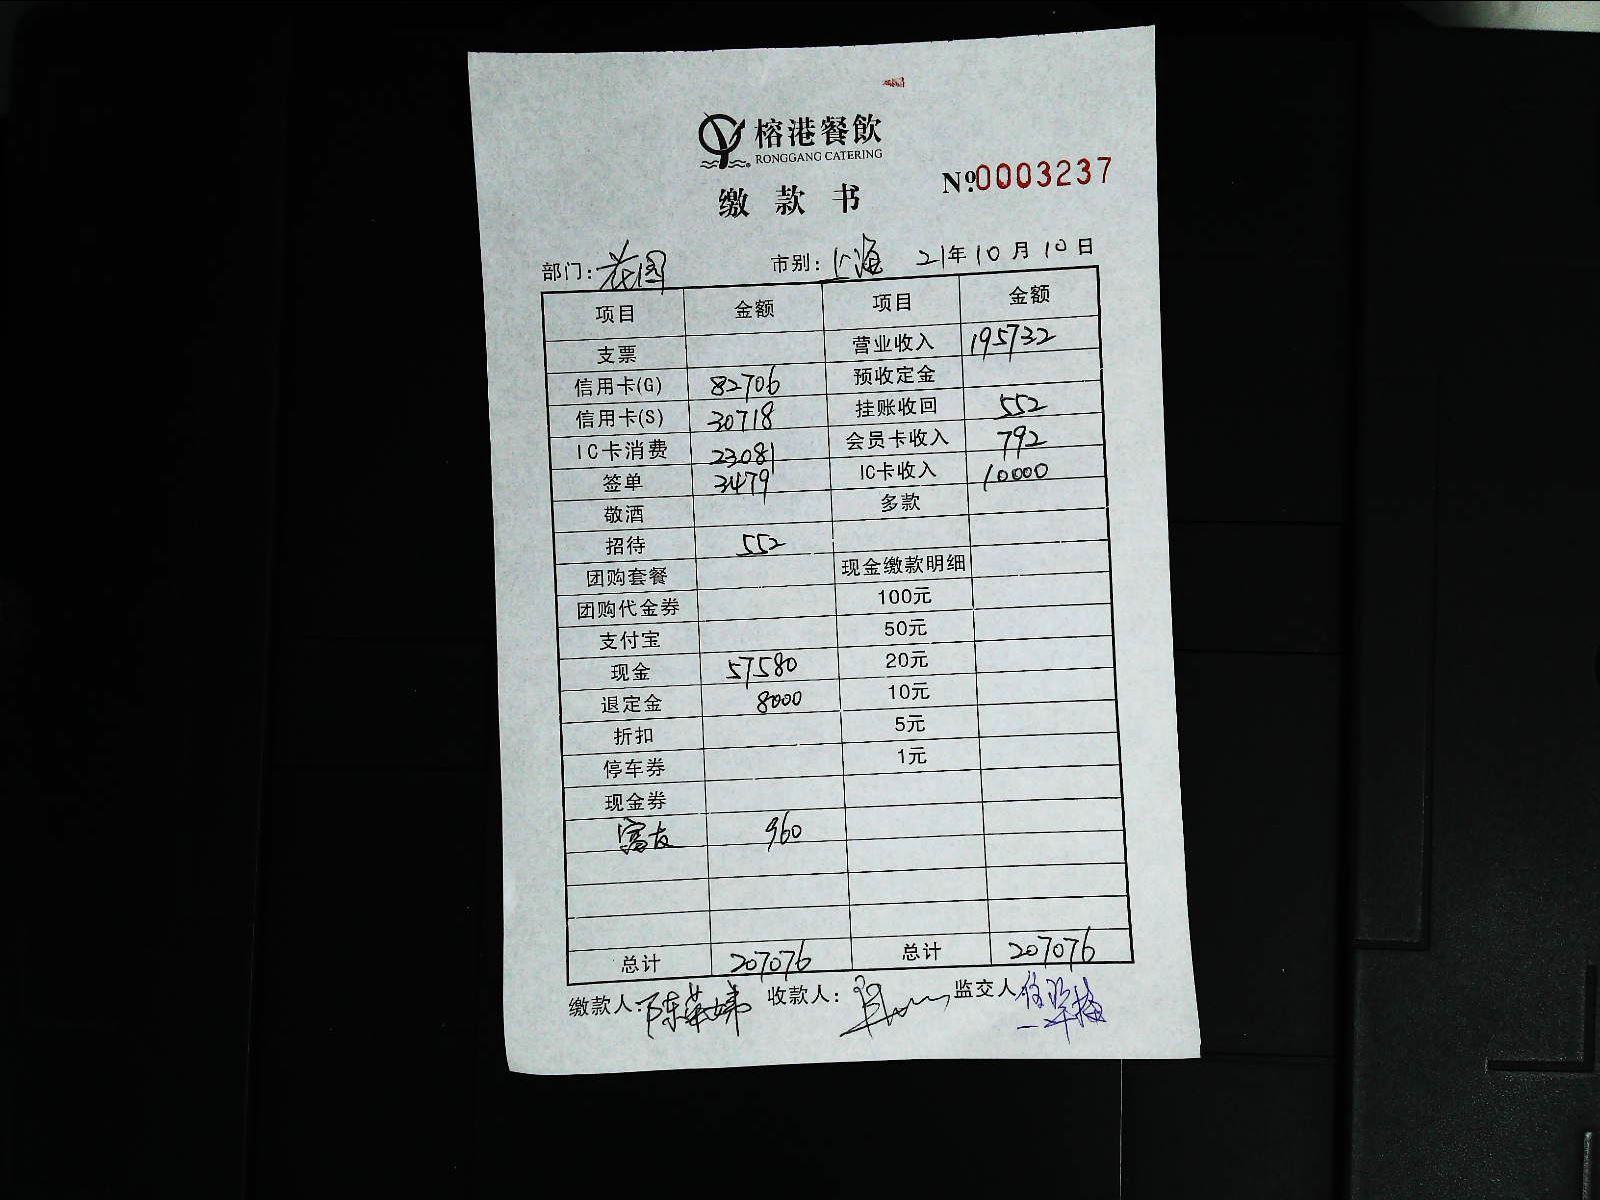 榕港餐飲
RONGGANG CATERING
缴款书
Nº.0003237
部门：花园 市别：上海 21年10月10日
项目 金额 项目 金额
支票 营业收入 195732
信用卡(G) 82706 预收定金
信用卡(S) 30718 挂账收回 552
IC卡消费 23081 会员卡收入 792
签单 3479 IC卡收入 10000
敬酒 多款
招待 552
团购套餐 现金缴款明细
团购代金券 100元
支付宝 50元
现金 57580 20元
退定金 8000 10元
折扣 5元
停车券 1元
现金券
富友 960
总计 207076 总计 207076
缴款人：陈華娣 收款人： 监交人